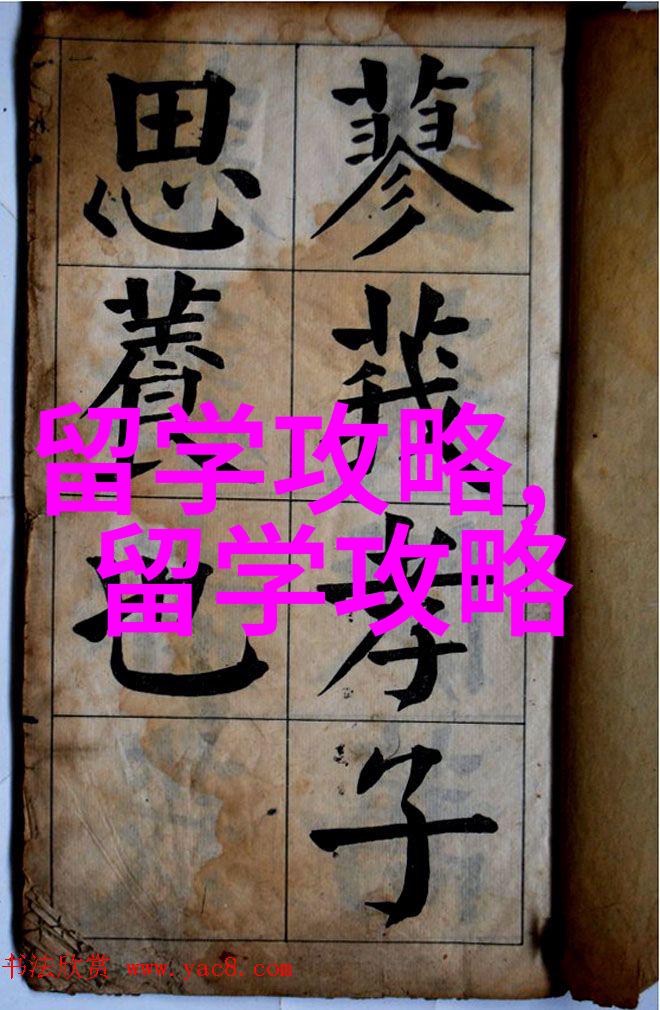 蓼莪孝子
思養也
留学攻略,
留学攻略
书法欣赏 www.yac8.com